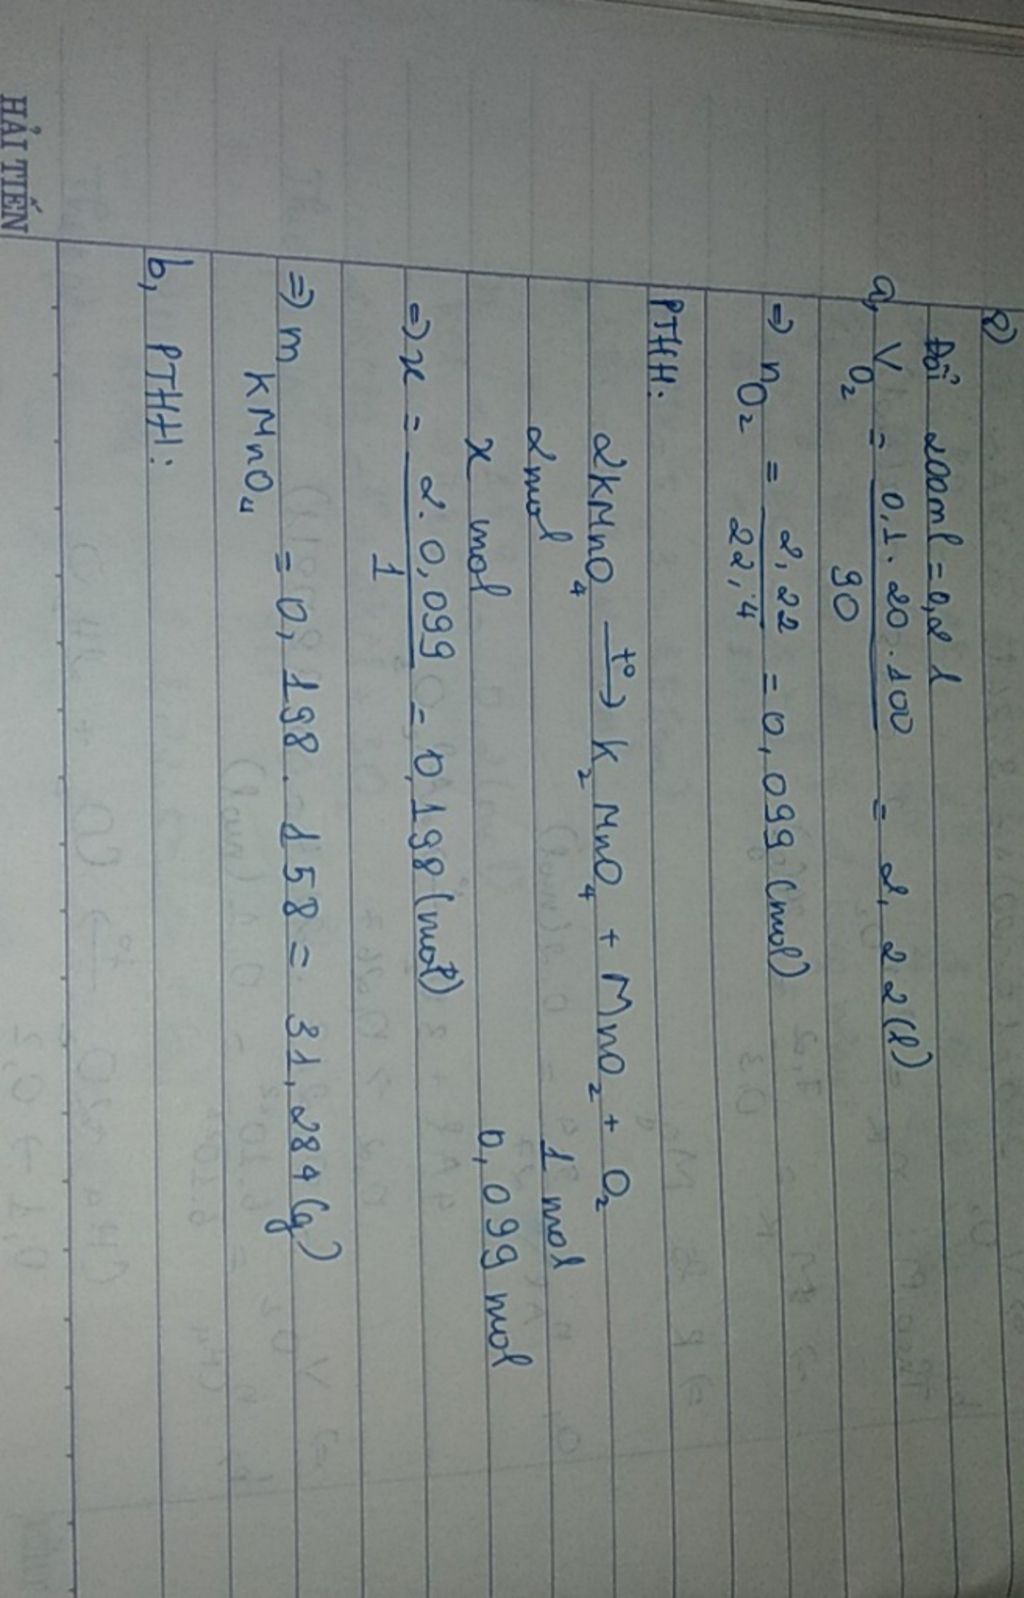 8)
Đổi 200ml = 0,2 l
a, V O₂ = 0,1 . 20 . 100 / 90 = 2,22 (l)
=> n O₂ = 2,22 / 22,4 = 0,099 (mol)
PTHH:
2KMnO₄ —t°→ K₂MnO₄ + MnO₂ + O₂
2mol 1 mol
x mol 0,099 mol
=> x = 2 . 0,099 / 1 = 0,198 (mol)
=> m KMnO₄ = 0,198 . 158 = 31,284 (g)
b, PTHH:
HẢI TIẾN